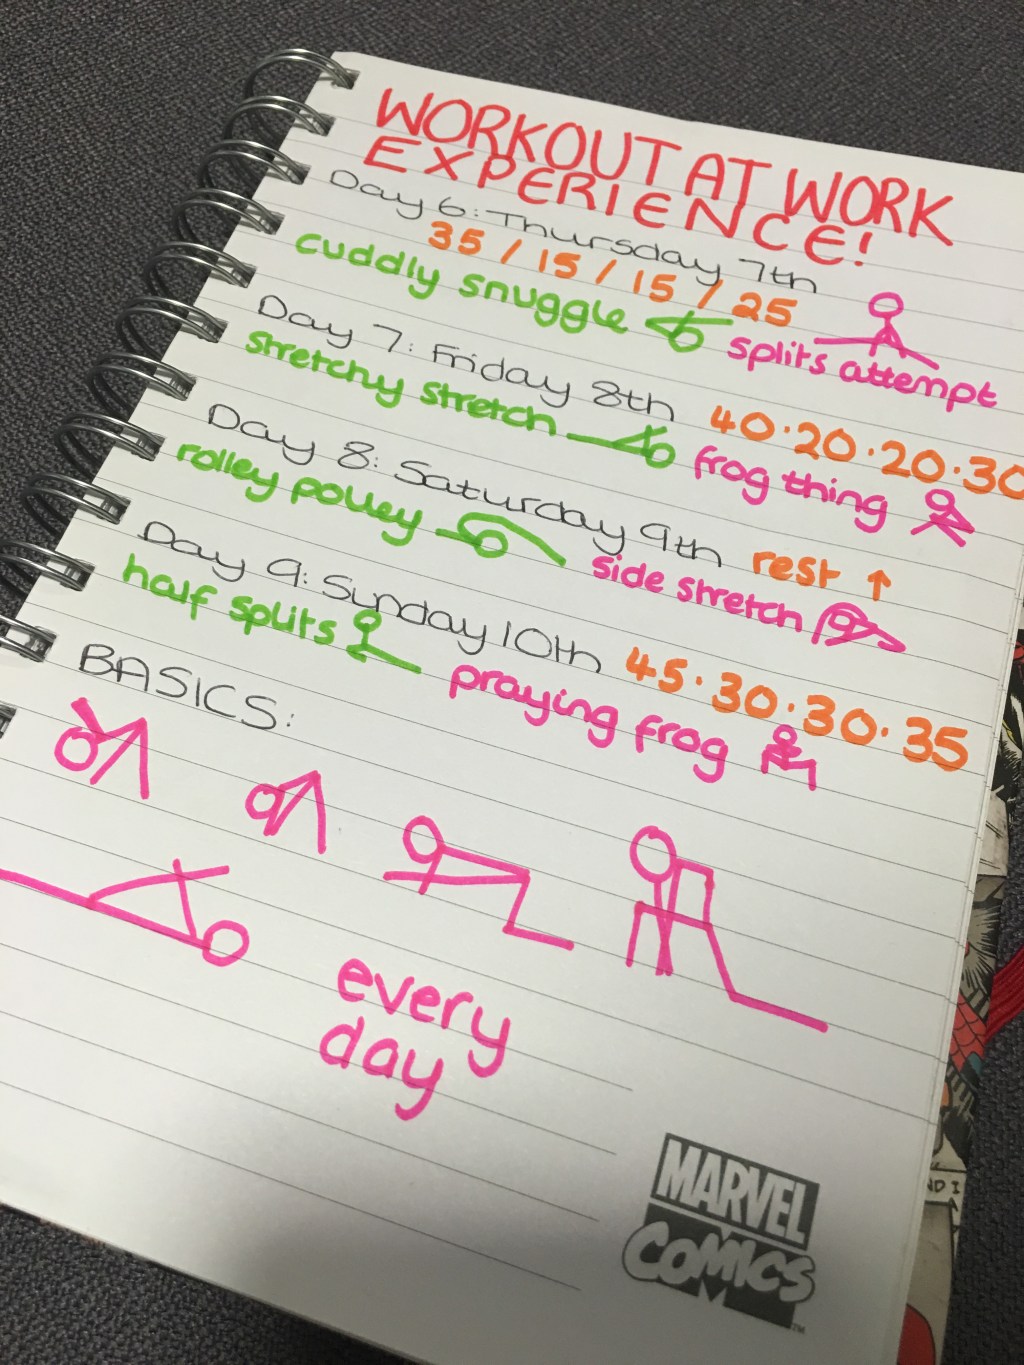 WORKOUT AT WORK
EXPERIENCE!
Day 6: Thursday 7th
35 / 15 / 15 / 25
cuddly snuggle splits attempt
Day 7: Friday 8th 40.20.20.30
stretchy stretch frog thing
Day 8: Saturday 9th rest ↑
rolley polley side stretch
Day 9: Sunday 10th 45.30.30.35
half splits praying frog
BASICS:
every
day
MARVEL
COMICS
TM
ND I